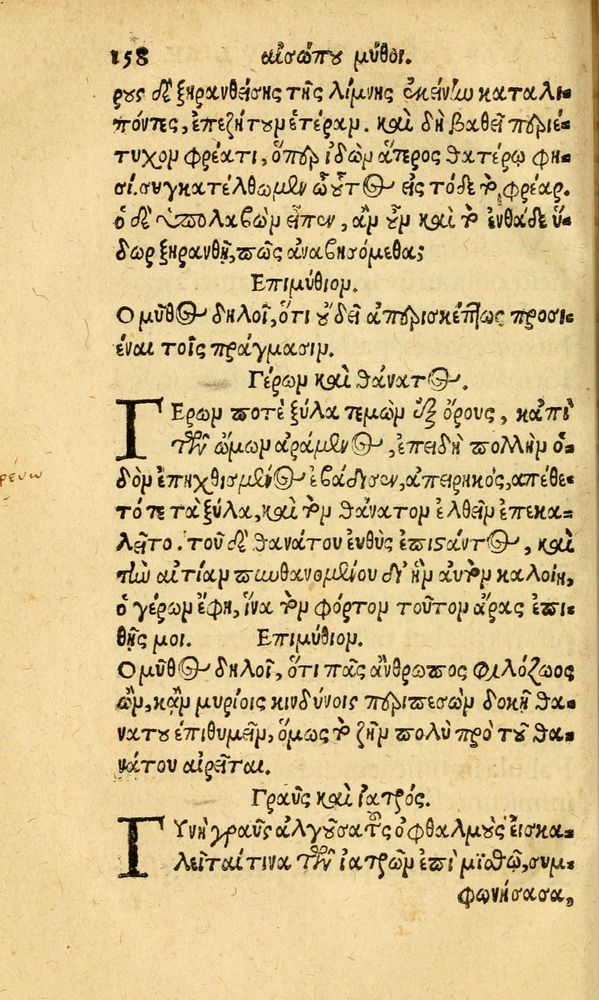 158 αἰσώπου μῦθοι.
ρους δὲ ξηρανθείσης τῆς λίμνης ἐκείνην καταλι-
πόντες, ἐπεζήτουν ἑτέραν. καὶ δὴ βαθεῖ περιέ-
τυχον φρέατι, ὅπερ ἰδὼν ἅτερος θατέρῳ φη-
σί. συγκατέλθωμεν ὦ οὗτος εἰς τόδε τὸ φρέαρ.
ὁ δὲ ὑπολαβὼν εἶπεν, ἂν οὖν καὶ τὸ ἐνθάδε ὕ-
δωρ ξηρανθῇ, πῶς ἀναβησόμεθα;
Επιμύθιον.
Ο μῦθος δηλοῖ, ὅτι οὐ δεῖ ἀπερισκέπτως προσι-
έναι τοῖς πράγμασιν.
Γέρων καὶ θάνατος.
ΓΕρων ποτὲ ξύλα τεμὼν ἐξ ὄρους, κἀπὶ
τῶν ὤμων ἀράμενος, ἐπειδὴ πολλὴν ὁ-
δὸν ἐπηχθισμένος ἐβάδισεν, ἀπειρηκὸς, ἀπέθε-
τό τε τὰ ξύλα, καὶ τὸν θάνατον ἐλθεῖν ἐπεκα-
λεῖτο. τοῦ δὲ θανάτου εὐθὺς ἐπιστάντος, καὶ
τὴν αἰτίαν πυνθανομένου δι' ἣν αὐτὸν καλοίη,
ὁ γέρων ἔφη, ἵνα τὸν φόρτον τοῦτον ἄρας ἐπι-
θῇς μοι. Επιμύθιον.
Ο μῦθος δηλοῖ, ὅτι πᾶς ἄνθρωπος φιλόζωος
ὢν, κἂν μυρίοις κινδύνοις περιπεσὼν δοκῇ θα-
νάτου ἐπιθυμεῖν, ὅμως τὸ ζῆν πολὺ πρὸ τοῦ θα-
νάτου αἱρεῖται.
Γραῦς καὶ ἰατρός.
ΓΥνὴ γραῦς ἀλγοῦσα τοὺς ὀφθαλμοὺς εἰσκα-
λεῖταί τινα τῶν ἰατρῶν ἐπὶ μισθῷ, συμ-
φωνήσασα,